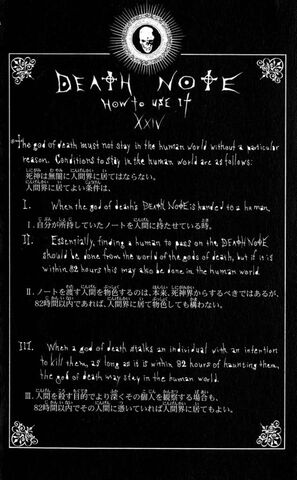 DEATH NOTE
HOW TO USE IT
XXIV
The god of death must not stay in the human world without a particular
reason. Conditions to stay in the human world are as follows:
死神は無闇に人間界に居てはならない。
人間界に居てよい条件は、
I. When the god of death's DEATH NOTE is handed to a human.
I. 自分が所持していたノートを人間に持たせている時。
II. Essentially, finding a human to pass on the DEATH NOTE
should be done from the world of the gods of death, but if it is
within 82 hours this may also be done in the human world.
II. ノートを渡す人間を物色するのは、本来、死神界からするべきではあるが、
82時間以内であれば、人間界に居て物色しても構わない。
III. When a god of death stalks an individual with an intention
to kill them, as long as it is within 82 hours of haunting them,
the god of death may stay in the human world.
III. 人間を殺す目的でより深くその個人を観察する場合も、
82時間以内でその人間に憑いていれば人間界に居てもよい。